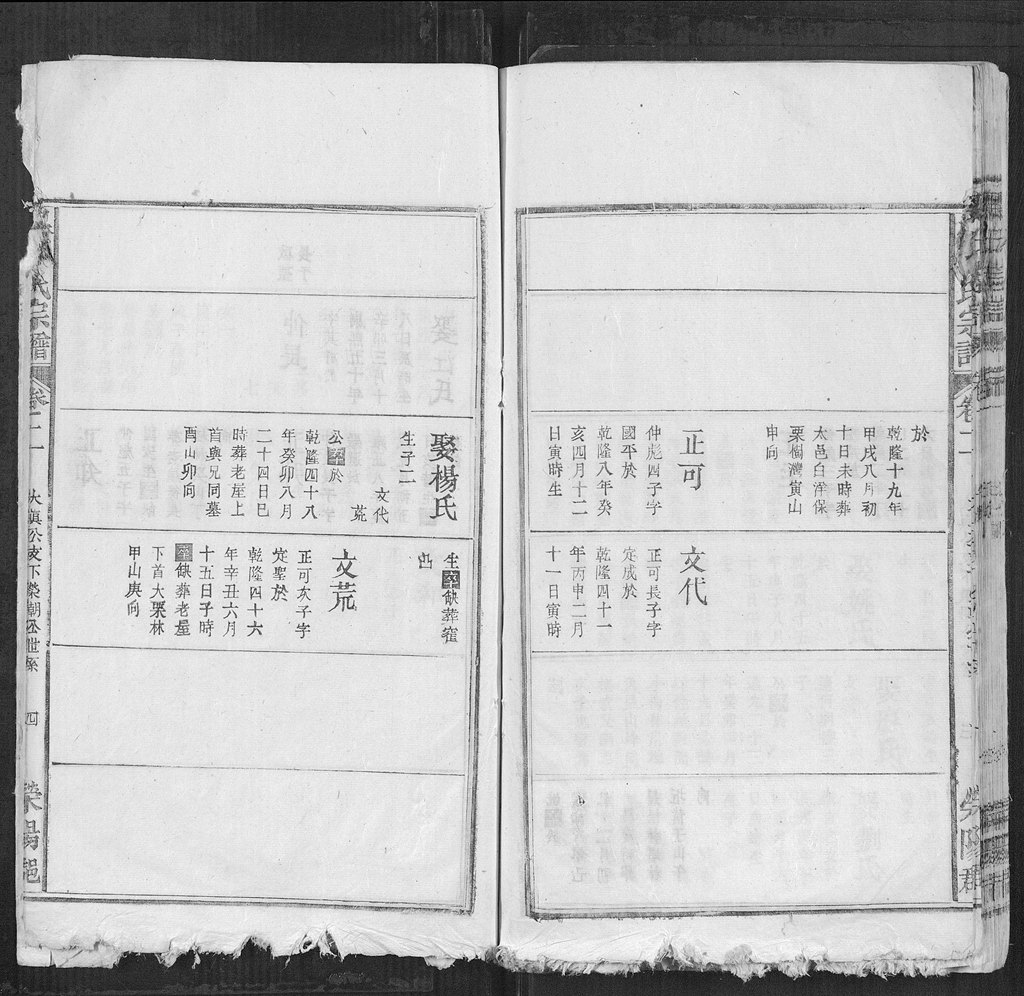 於
乾隆十九年
甲戌八月初
十日未時葬
太邑白洋保
栗樹灣寅山
申向
正可
仲彪四子字
國平於
乾隆八年癸
亥四月十二
日寅時生
文代
正可長子字
定成於
乾隆四十一
年丙申二月
十一日寅時
氏宗譜
卷二
娶楊氏
生子二
文代
荒
公卒於
乾隆四十八
年癸卯八月
二十四日巳
時葬老屋上
首與兄同墓
酉山卯向
生卒缺葬
凸
文荒
正可次子字
定聖於
乾隆四十六
年辛丑六月
十五日子時
卒缺葬老屋
下首大栗林
甲山庚向
氏宗譜
卷二
大滇公支下榮朝公世系
四